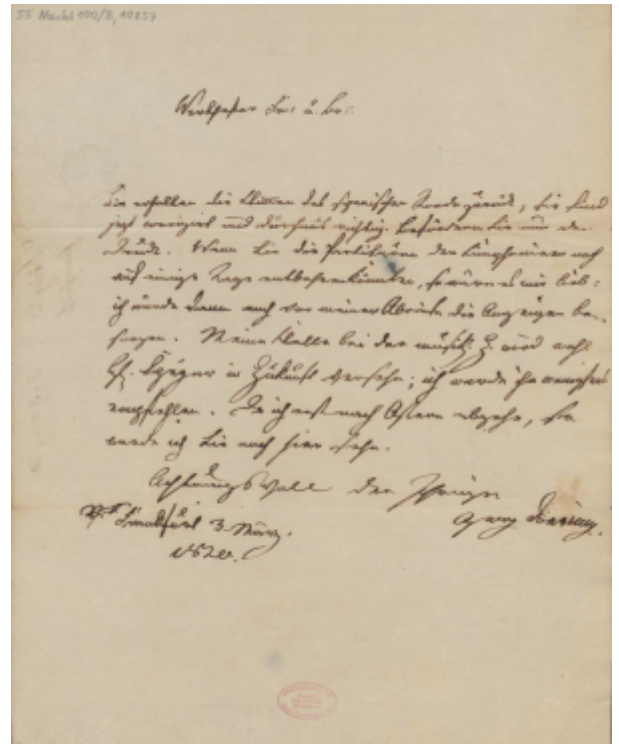 55 Nachl 100/B, 10257
Werthester
Sie erhalten die Stimmen des spanischen zurück, sie sind
jetzt corrigirt und durchaus richtig. Befördern Sie nun den
Druck. Wenn Sie die Partituren der Symphonieen noch
auf einige Tage entbehren könnten, so wäre es mir lieb:
ich würde dann auch vor meiner Abreise die Anzeigen be-
sorgen. Meine Stelle bei der musik. Z. wird wohl
H. in Zukunft versehn; ich werde ihn wenigstens
empfehlen. Da ich erst nach Ostern abgehe, so
werde ich Sie noch hier sehn.
Achtungsvoll der Ihrige
Georg Döring.
Frankfurt 3 März.